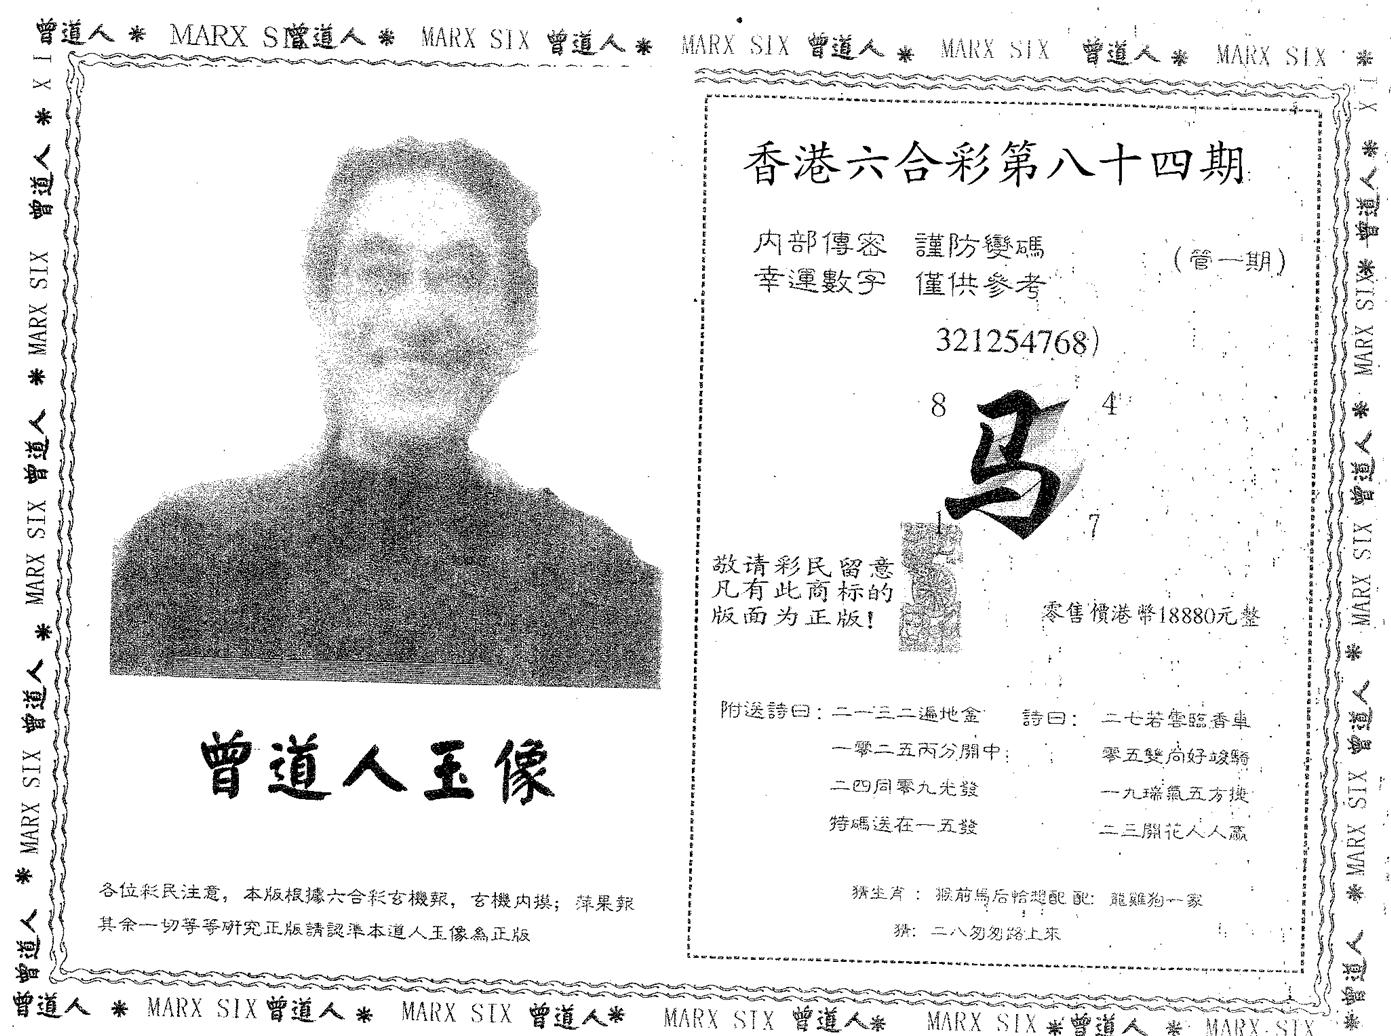 曾道人 * MARX SIX 曾道人 * MARX SIX 曾道人 * MARX SIX 曾道人 * MARX SIX 曾道人 * MARX SIX *
曾道人玉像
各位彩民注意，本版根據六合彩玄機報，玄機内摸；萍果報
其余一切等等研究正版請認準本道人玉像為正版
香港六合彩第八十四期
内部傳密 謹防變碼
幸運數字 僅供參考
(管一期)
321254768)
8 4
马
1 7
敬请彩民留意
凡有此商标的
版面为正版!
零售價港幣18880元整
附送詩曰：二一三二遍地金
一零二五丙分開中:
二四同零九光發
特碼送在一五發
詩曰： 二七若雲臨香車
零五雙尚好竣騎
一九瑞氣五方捷
二三開花人人贏
猜生肖： 猴前馬后恰想配 配: 龍雞狗一家
猜: 二八匆匆路上來
曾道人 * MARX SIX 曾道人 * MARX SIX 曾道人 * MARX SIX 曾道人 * MARX SIX * 曾道人 * MARX SIX
MARX SIX 曾道人 * MARX SIX 曾道人 * MARX SIX 曾道人 *
曾道人 * MARX SIX 曾道人 * MARX SIX 曾道人 * MARX SIX 曾道人 *